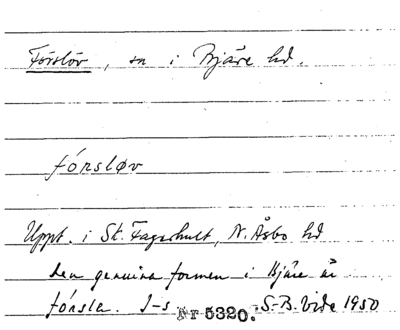 Förslöv, sn i Bjäre hd.
fórsløv
Uppt. i St. Fagerhult, N. Åsbo hd
den genuina formen i Bjäre är
fórsla. I-s Nr 5320. S-B. Vide 1950